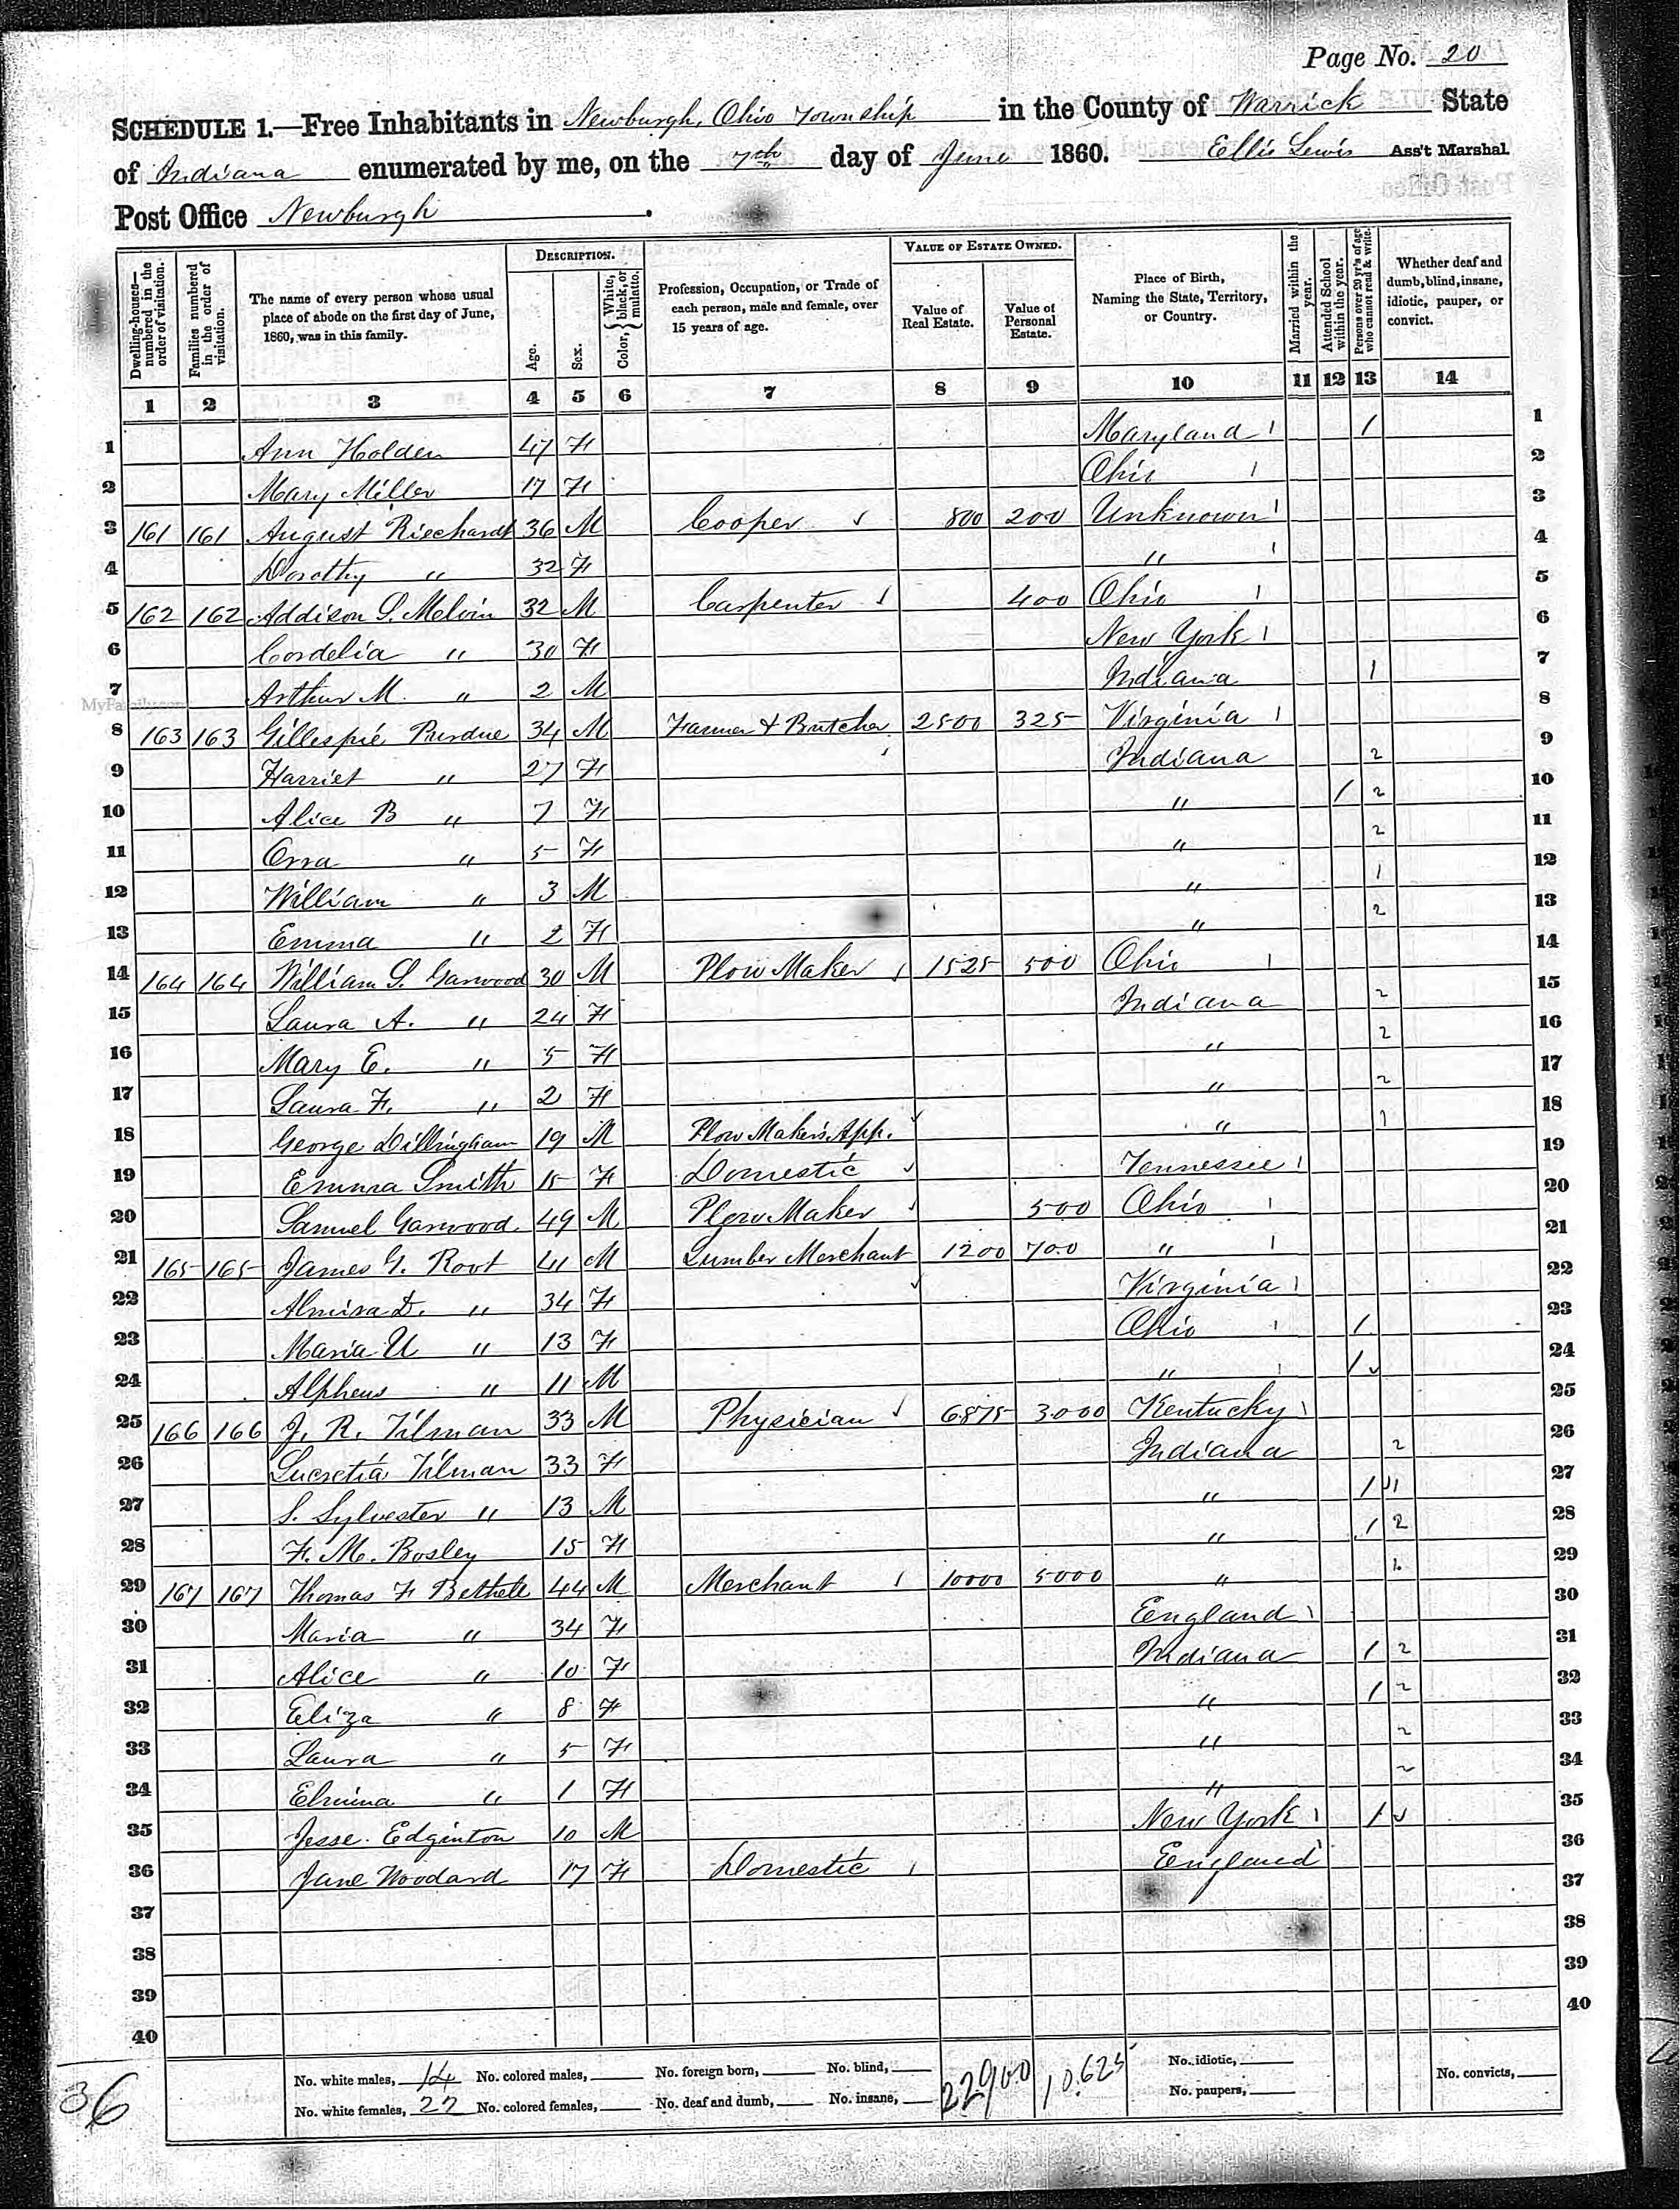 Page No. 20
SCHEDULE 1.—Free Inhabitants in Newburgh, Ohio Township in the County of Warrick State
of Indiana enumerated by me, on the 7th day of June 1860. Ellis Lewis Ass't Marshal.
Post Office Newburgh.
Dwelling-houses—numbered in the order of visitation.
Families numbered in the order of visitation.
The name of every person whose usual place of abode on the first day of June, 1860, was in this family.
DESCRIPTION.
Age.
Sex.
Color, { White, black, or mulatto.
Profession, Occupation, or Trade of each person, male and female, over 15 years of age.
VALUE OF ESTATE OWNED.
Value of Real Estate.
Value of Personal Estate.
Place of Birth, Naming the State, Territory, or Country.
Married within the year.
Attended School within the year.
Persons over 20 y'rs of age who cannot read & write.
Whether deaf and dumb, blind, insane, idiotic, pauper, or convict.
1 2 3 4 5 6 7 8 9 10 11 12 13 14
1 Ann Holden 47 F Maryland 1 / 1
2 Mary Miller 17 F Ohio 1 2
3 161 161 August Riechardt 36 M Cooper ✓ 800 200 Unknown 1 3
4 Dorothy " 32 F " 1 4
5 162 162 Addison S. Melvin 32 M Carpenter ✓ 400 Ohio 1 5
6 Cordelia " 30 F New York 1 6
7 Arthur M. " 2 M Indiana 1 7
MyFamily.com
8 163 163 Gillespie Purdue 34 M Farmer & Butcher 2500 325 Virginia 1 8
9 Harriet " 27 F Indiana 2 9
10 Alice B " 7 F " / 2 10
11 Orra " 5 F " 2 11
12 William " 3 M " 1 12
13 Emma " 2 F " 2 13
14 164 164 William S. Garwood 30 M Plow Maker 1525 500 Ohio 1 14
15 Laura A. " 24 F Indiana 2 15
16 Mary E. " 5 F " 2 16
17 Laura F. " 2 F " 2 17
18 George Dillingham 19 M Plow Maker's App. ✓ " 1 18
19 Emma Smith 15 F Domestic ✓ Tennessee 1 19
20 Samuel Garwood 49 M Plow Maker 500 Ohio 1 20
21 165 165 James G. Root 41 M Lumber Merchant 1200 700 " 1 21
22 Almira D. " 34 F ✓ Virginia 1 22
23 Maria U " 13 F Ohio 1 / 23
24 Alpheus " 11 M " 1 / ✓ 24
25 166 166 J. R. Tilman 33 M Physician ✓ 6875 3000 Kentucky 1 25
26 Lucretia Tilman 33 F Indiana 2 26
27 S. Sylvester " 13 M " / 1 27
28 F. M. Bosley 15 F " / 2 28
29 167 167 Thomas F Bethell 44 M Merchant 10000 5000 " 1 29
30 Maria " 34 F England 1 30
31 Alice " 10 F Indiana / 2 31
32 Eliza " 8 F " / 2 32
33 Laura " 5 F " 2 33
34 Elmina " 1 F " 2 34
35 Jesse Edginton 10 M New York 1 / ✓ 35
36 Jane Woodard 17 F Domestic England 1 36
37 37
38 38
39 39
40 40
36
No. white males, 14 No. colored males, No. foreign born, No. blind, 22900 10,625 No. idiotic, No. convicts,
No. white females, 22 No. colored females, No. deaf and dumb, No. insane, No. paupers,